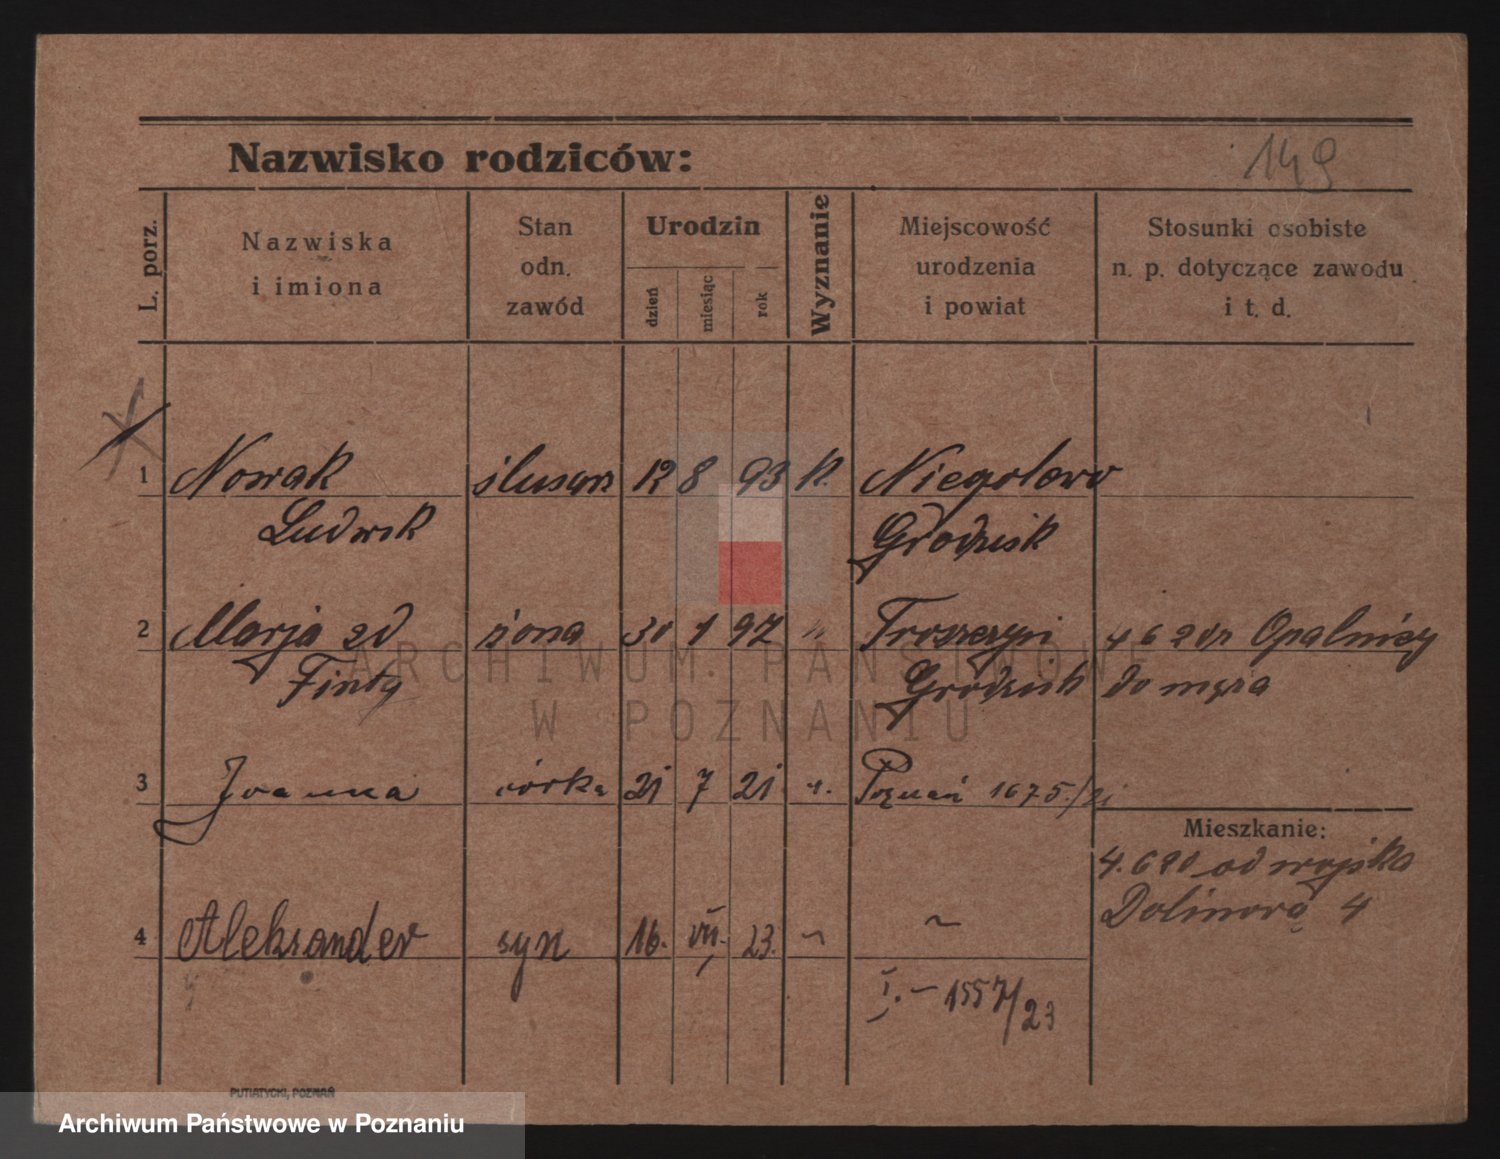 Nazwisko rodziców:
149
L. porz.
Nazwiska
i imiona
Stan
odn.
zawód
Urodzin
dzień
miesiąc
rok
Wyznanie
Miejscowość
urodzenia
i powiat
Stosunki osobiste
n. p. dotyczące zawodu
i t. d.
1 Nowak ślusarz 12 8 93 k.
Ludwik Grodzisk
2 Marja zd żona 30 1 97 "
Opalenicy
Grodzisk do męża
3 Joanna córka 21 7 21 ". Poznań 1675/21
Mieszkanie:
4.6 20 od wojska
4
4 Aleksander syn 16. VII. 23. ~ ~
I. – 1557/23
PUTIATYCKI, POZNAŃ
ARCHIWUM PAŃSTWOWE
W POZNANIU
Archiwum Państwowe w Poznaniu